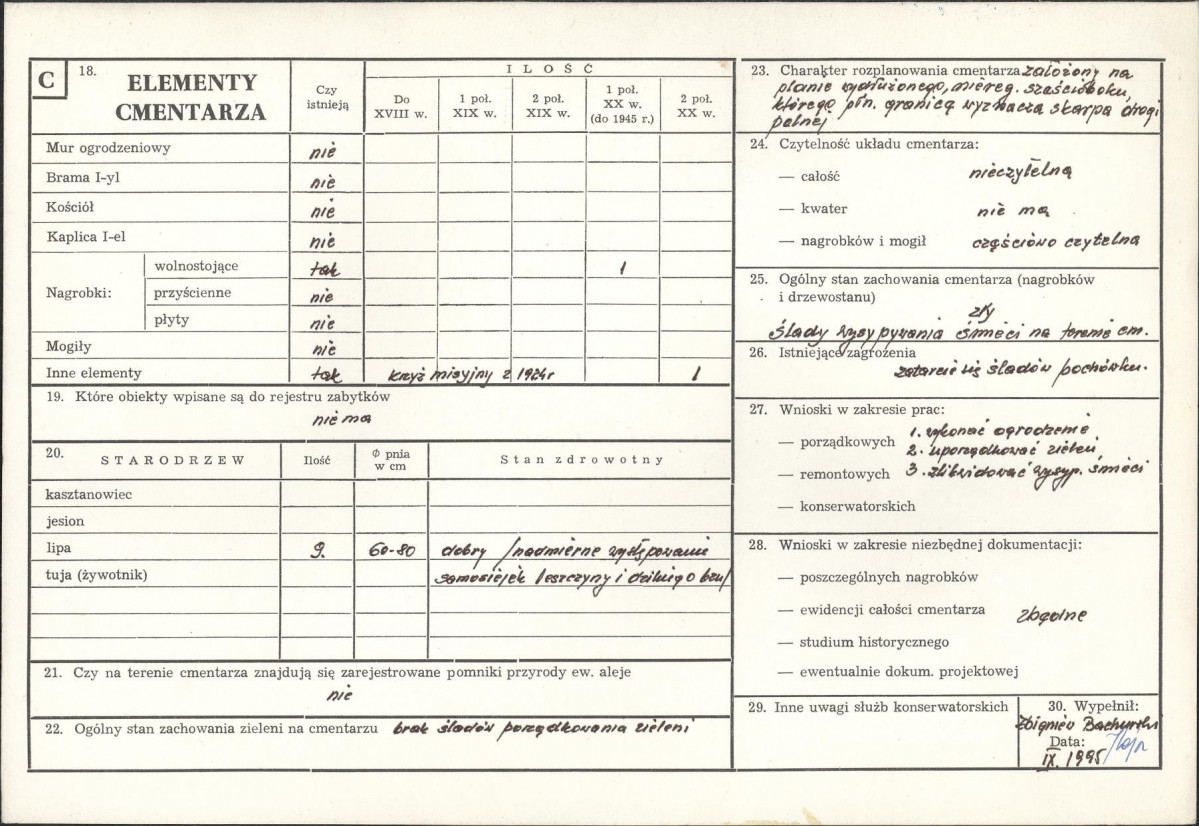 C
18.
ELEMENTY
CMENTARZA
Czy
istnieją
ILOŚĆ
Do
XVIII w.
1 poł.
XIX w.
2 poł.
XIX w.
1 poł.
XX w.
(do 1945 r.)
2 poł.
XX w.
Mur ogrodzeniowy nie
Brama I-yl nie
Kościół nie
Kaplica I-el nie
Nagrobki:
wolnostojące tak 1
przyścienne nie
płyty nie
Mogiły nie
Inne elementy tak krzyż misyjny z 1924r 1
19. Które obiekty wpisane są do rejestru zabytków
nie ma
20.
STARODRZEW
Ilość
Ø pnia
w cm
Stan zdrowotny
kasztanowiec
jesion
lipa 9. 60-80 dobry /nadmierne występowanie
tuja (żywotnik) samosiejek leszczyny i dzikiego bzu/
21. Czy na terenie cmentarza znajdują się zarejestrowane pomniki przyrody ew. aleje
nie
22. Ogólny stan zachowania zieleni na cmentarzu brak śladów porządkowania zieleni
23. Charakter rozplanowania cmentarza założony na
planie wydłużonego, niereg. sześcioboku,
którego płn. granicę wyznacza skarpa drogi
polnej
24. Czytelność układu cmentarza:
— całość nieczytelna
— kwater nie ma
— nagrobków i mogił częściowo czytelna
25. Ogólny stan zachowania cmentarza (nagrobków
i drzewostanu)
zły
Ślady wysypywania śmieci na terenie cm.
26. Istniejące zagrożenia
zatarcie się śladów pochówku.
27. Wnioski w zakresie prac:
— porządkowych
1. wykonać ogrodzenie
2. uporządkować zieleń,
— remontowych
3. zlikwidować wysyp. śmieci
— konserwatorskich
28. Wnioski w zakresie niezbędnej dokumentacji:
— poszczególnych nagrobków
— ewidencji całości cmentarza zbędne
— studium historycznego
— ewentualnie dokum. projektowej
29. Inne uwagi służb konserwatorskich
30. Wypełnił:
Zbigniew Bachurski
Data:
IX. 1995